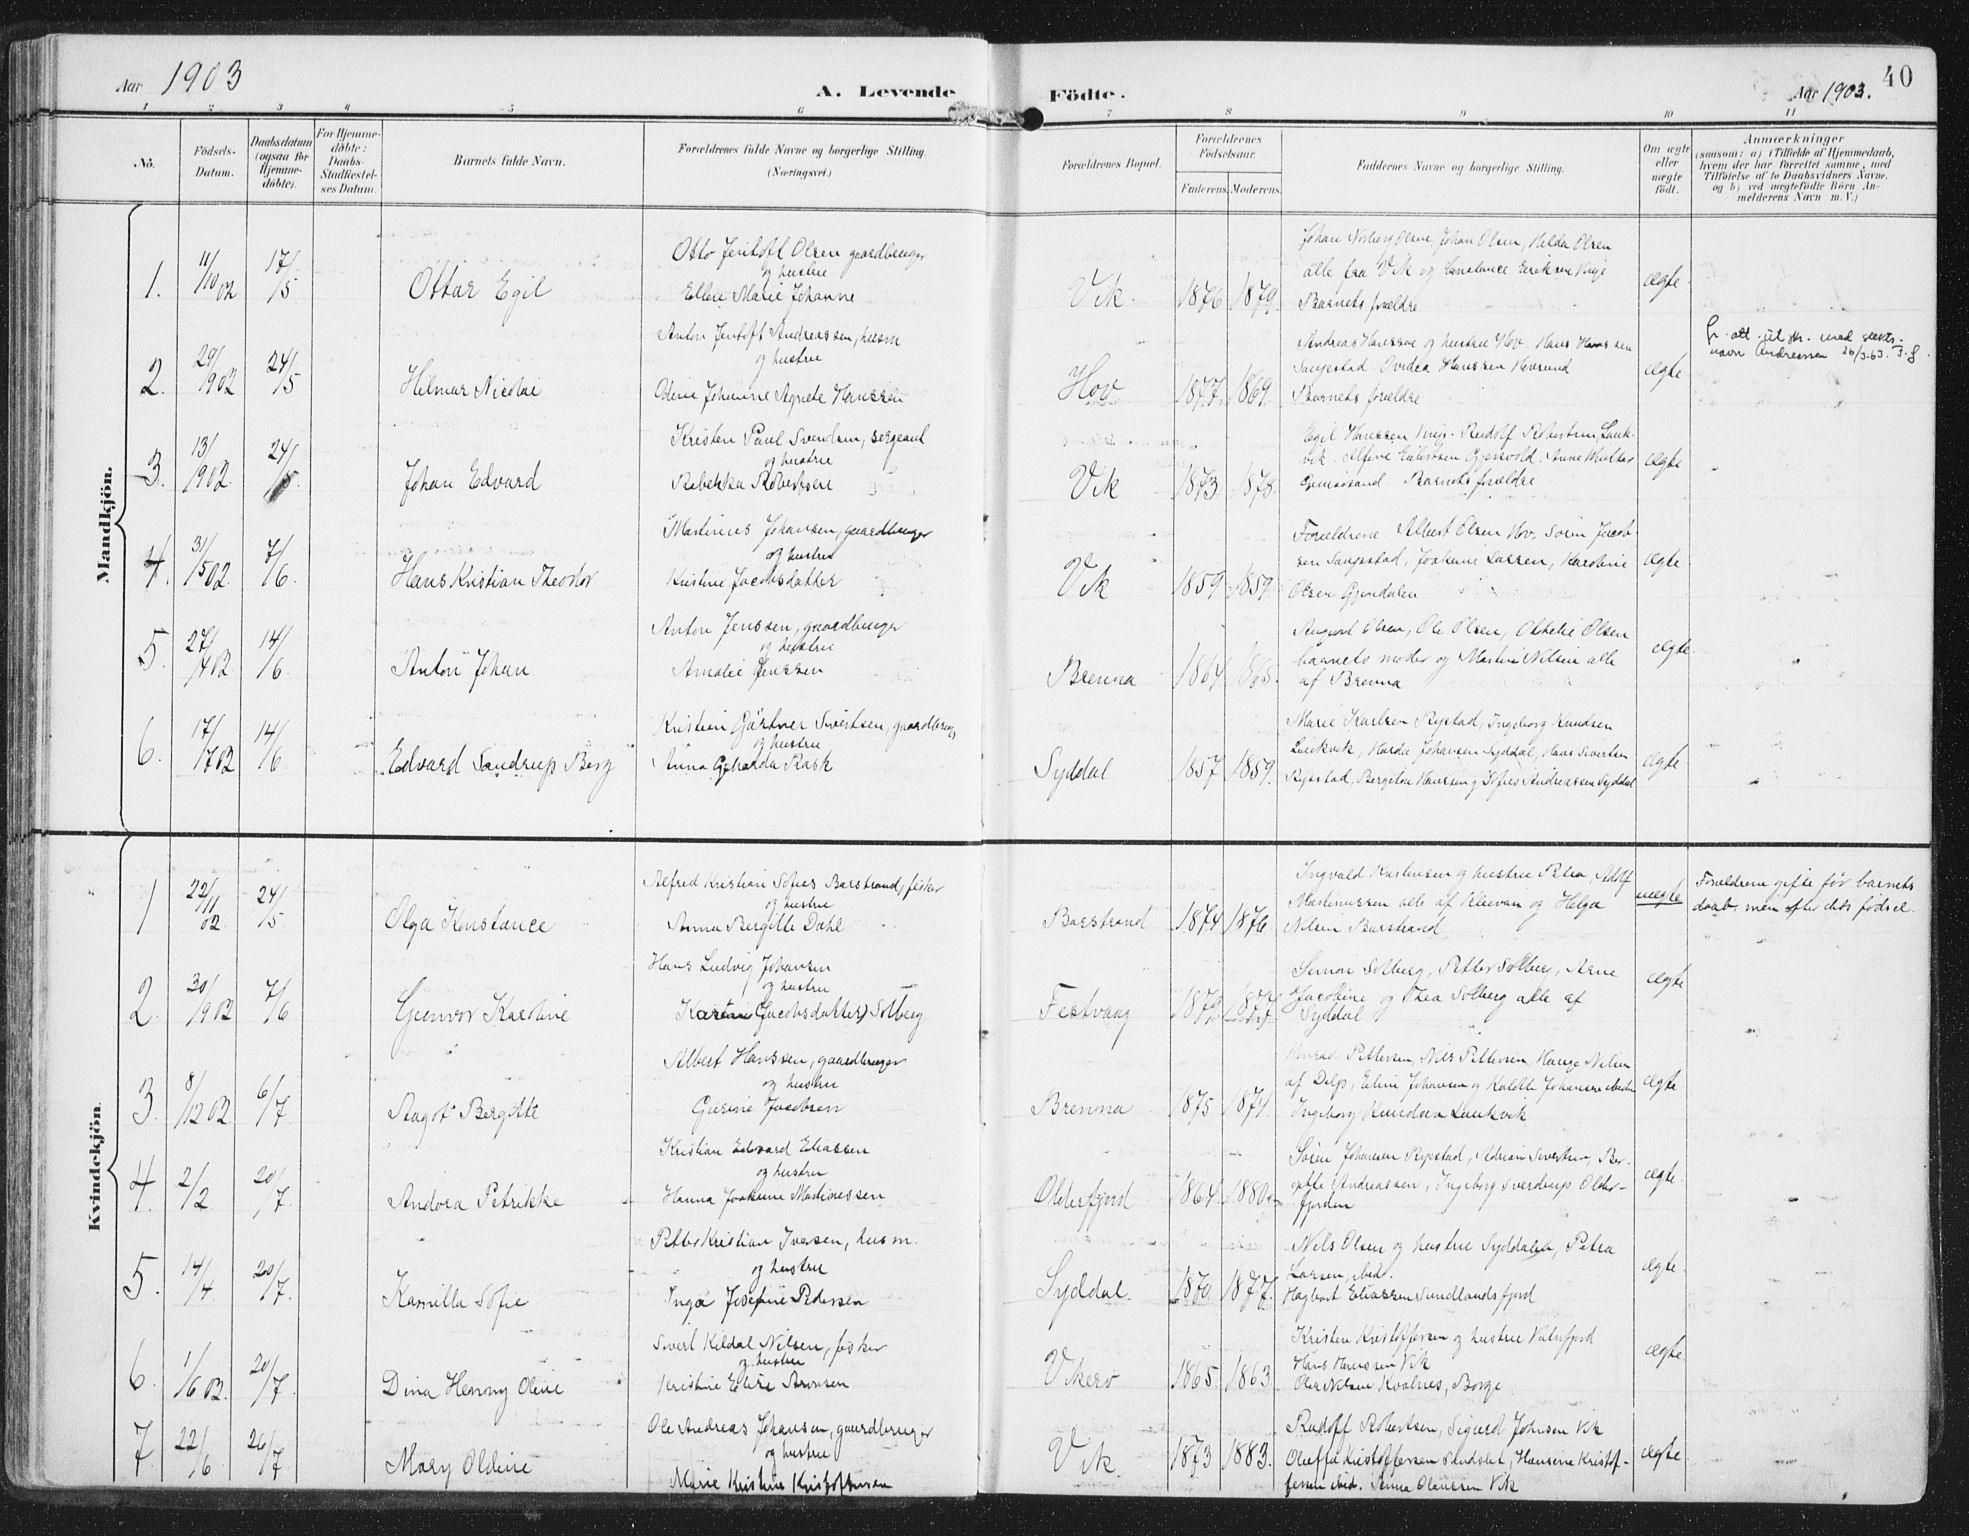 Aar 1903
A. Levende Födte.
Aar 1903.
40
1 2 3 4 5 6 7 8 9 10 11
No.
Födsels-
Datum.
Daabsdatum
(ogsaa for
Hjemme-
döbte).
For Hjemme-
döbte:
Daabs-
Stadfæstel-
ses Datum.
Barnets fulde Navn.
Forældrenes fulde Navne og borgerlige Stilling.
(Næringsvei.)
Forældrenes Bopæl.
Forældrenes
Födselsaar.
Faderens. Moderens.
Faddernes Navne og borgerlige Stilling.
Om ægte
eller
uægte
födt.
Anmærkninger
(saasom: a) i Tilfælde af Hjemmedaab,
hvem der har forrettet samme, med
Tilföielse af to Daabsvidners Navne,
og b) ved uægtefödte Börn An-
melderens Navn m. V.)
Mandkjön.
1. 11/10 02 17/5 Ottar Egil
Otto Jentoft Olsen gaardbruger
og hustru
Ellen Marie Johanne
Vik. 1876 1879.
Johan Norberg Olsen, Johan Olsen, Helda Olsen
alle fra Vik og Constance Eriksen
Barnets forældre
ægte
2. 29/1902 24/5 Hilmar Nicolai
Anton Jentoft Andreassen, husm
og hustru
Odine Johanne Agnete Hanssen
Hov 1877 1869.
Andreas Hanssen og hustru Hov. Hans Hanssen
Saupstad. Ovidea Hanssen
Barnets forældre
ægte
fr. att. ut str. med slekts-
navn Andreassen 26/3.63.
3. 13/1902. 24/5. Johan Edvard
Kristen Paul Svendsen, sergeant
og hustru
Rebekka Robertsen
Vik 1873 1878.
Egil Hanssen Rudolf Robertsen, Lauk-
vik. Gjersvold. Anne
Gimsösand Barnets forældre
ægte
4. 31/5 02. 7/6. Hans Kristian Theodor
Martinus Johansen, gaardbruger
og hustru
Kristine Jacobsdatter
Vik 1859 1859.
Forældrene. Albert Olsen Hov, Sören Jacob-
sen Saupstad, Joakime Larsen, Karoline
Olsen Gjerdalen
ægte
5. 27/402 14/6. Anton Johan
Anton Jenssen, gaardbruger
og hustru
Amalie Jenssen
Brenna 1864 1865.
Olsen, Ole Olsen, Othelie Olsen
barnets moder og Martin Nilsen alle
af Brenna
ægte.
6. 17/702 14/6. Edvard Sandrup Berg
Kristian Gärtner Sivertsen, gaardbrug,
og hustru
Anna Gerharda Rask
Syddal 1857 1859.
Marie Karlsen Rystad, Ingeborg Knudsen
Laukvik, Harda Johansen Syddal, Hans Sivertsen
Rystad, Bergitte Hanssen og Andreassen Syddal
ægte
Kvindekjön.
1 22/11 02 24/5 Olga Konstance
Alfred Kristian Sofus Barstrand, fisker
og hustru
Anna Bergitte Dahl
Barstrand 1874 1876.
Ingvald Kristensen og hustru Petra, Adolf
Martinussen alle af Kleivan og Helga
Nilsen Barstrand
uægte
Forældrene gifte för barnets
daab, men efter dets födsel.
2. 30/902 7/6 Gunvor Karoline
Hans Ludvig Johansen
og hustru
Karen (Jacobsdatter) Solberg
Festvaag 1879 1877
Simon Solberg, Petter Solberg, Arne
Jacobine og Thea Solberg alle af
Syddal
ægte
3. 8/12 02. 6/7. Aagot Bergitte
Albert Hanssen, gaardbruger
og hustru
Gurine Jacobsen
Brenna 1875 1874.
Konrad Pettersen, Nils Pettersen, Hauge Nilsen
af Delp, Eline Johansen og Johansen
Ingeborg Knudsen Laukvik
ægte
4. 2/2 20/7. Andora Petrikke
Kristian Edvard Eliassen
og hustru
Hanna Joakime Martinessen
Olderfjord 1864 1880.
Sören Johansen Rystad, Adrian Sivertsen, Ber-
gitte Andreassen, Ingeborg Sverdrup Older-
fjorden
ægte.
5. 14/4. 20/7. Kamilla Sofie
Petter Kristian Iversen, husm.
og hustru
Inga Josefine Pedersen
Syddal. 1870 1877.
Nils Olsen og hustru Syddalen, Petra
Larsen, ibid.
Hagbart Eliassen Sundlandsfjord
ægte.
6. 1/6 02. 20/7 Dina Henny Oline
Sivert Kildal Nilsen, fisker
og hustru
Kristine Elise Arntsen
Vikerö 1865 1863
Kristen Kristoffersen og hustru Vatnfjord
Hans Hanssen Vik
Olea Nilsen Kvalnes, Borge
ægte.
7. 22/6 26/7. Mary Oldine
Ole Andreas Johansen, gaardbruger
og hustru
Marie Kristine Kristoffersen
Vik. 1873 1883.
Rudolf Robertsen, Sigurd Johnsen Vik
Oluffa Kristoffersen Sandset, Hansine Kristof-
fersen ibid. Jenna Olaussen Vik
ægte.